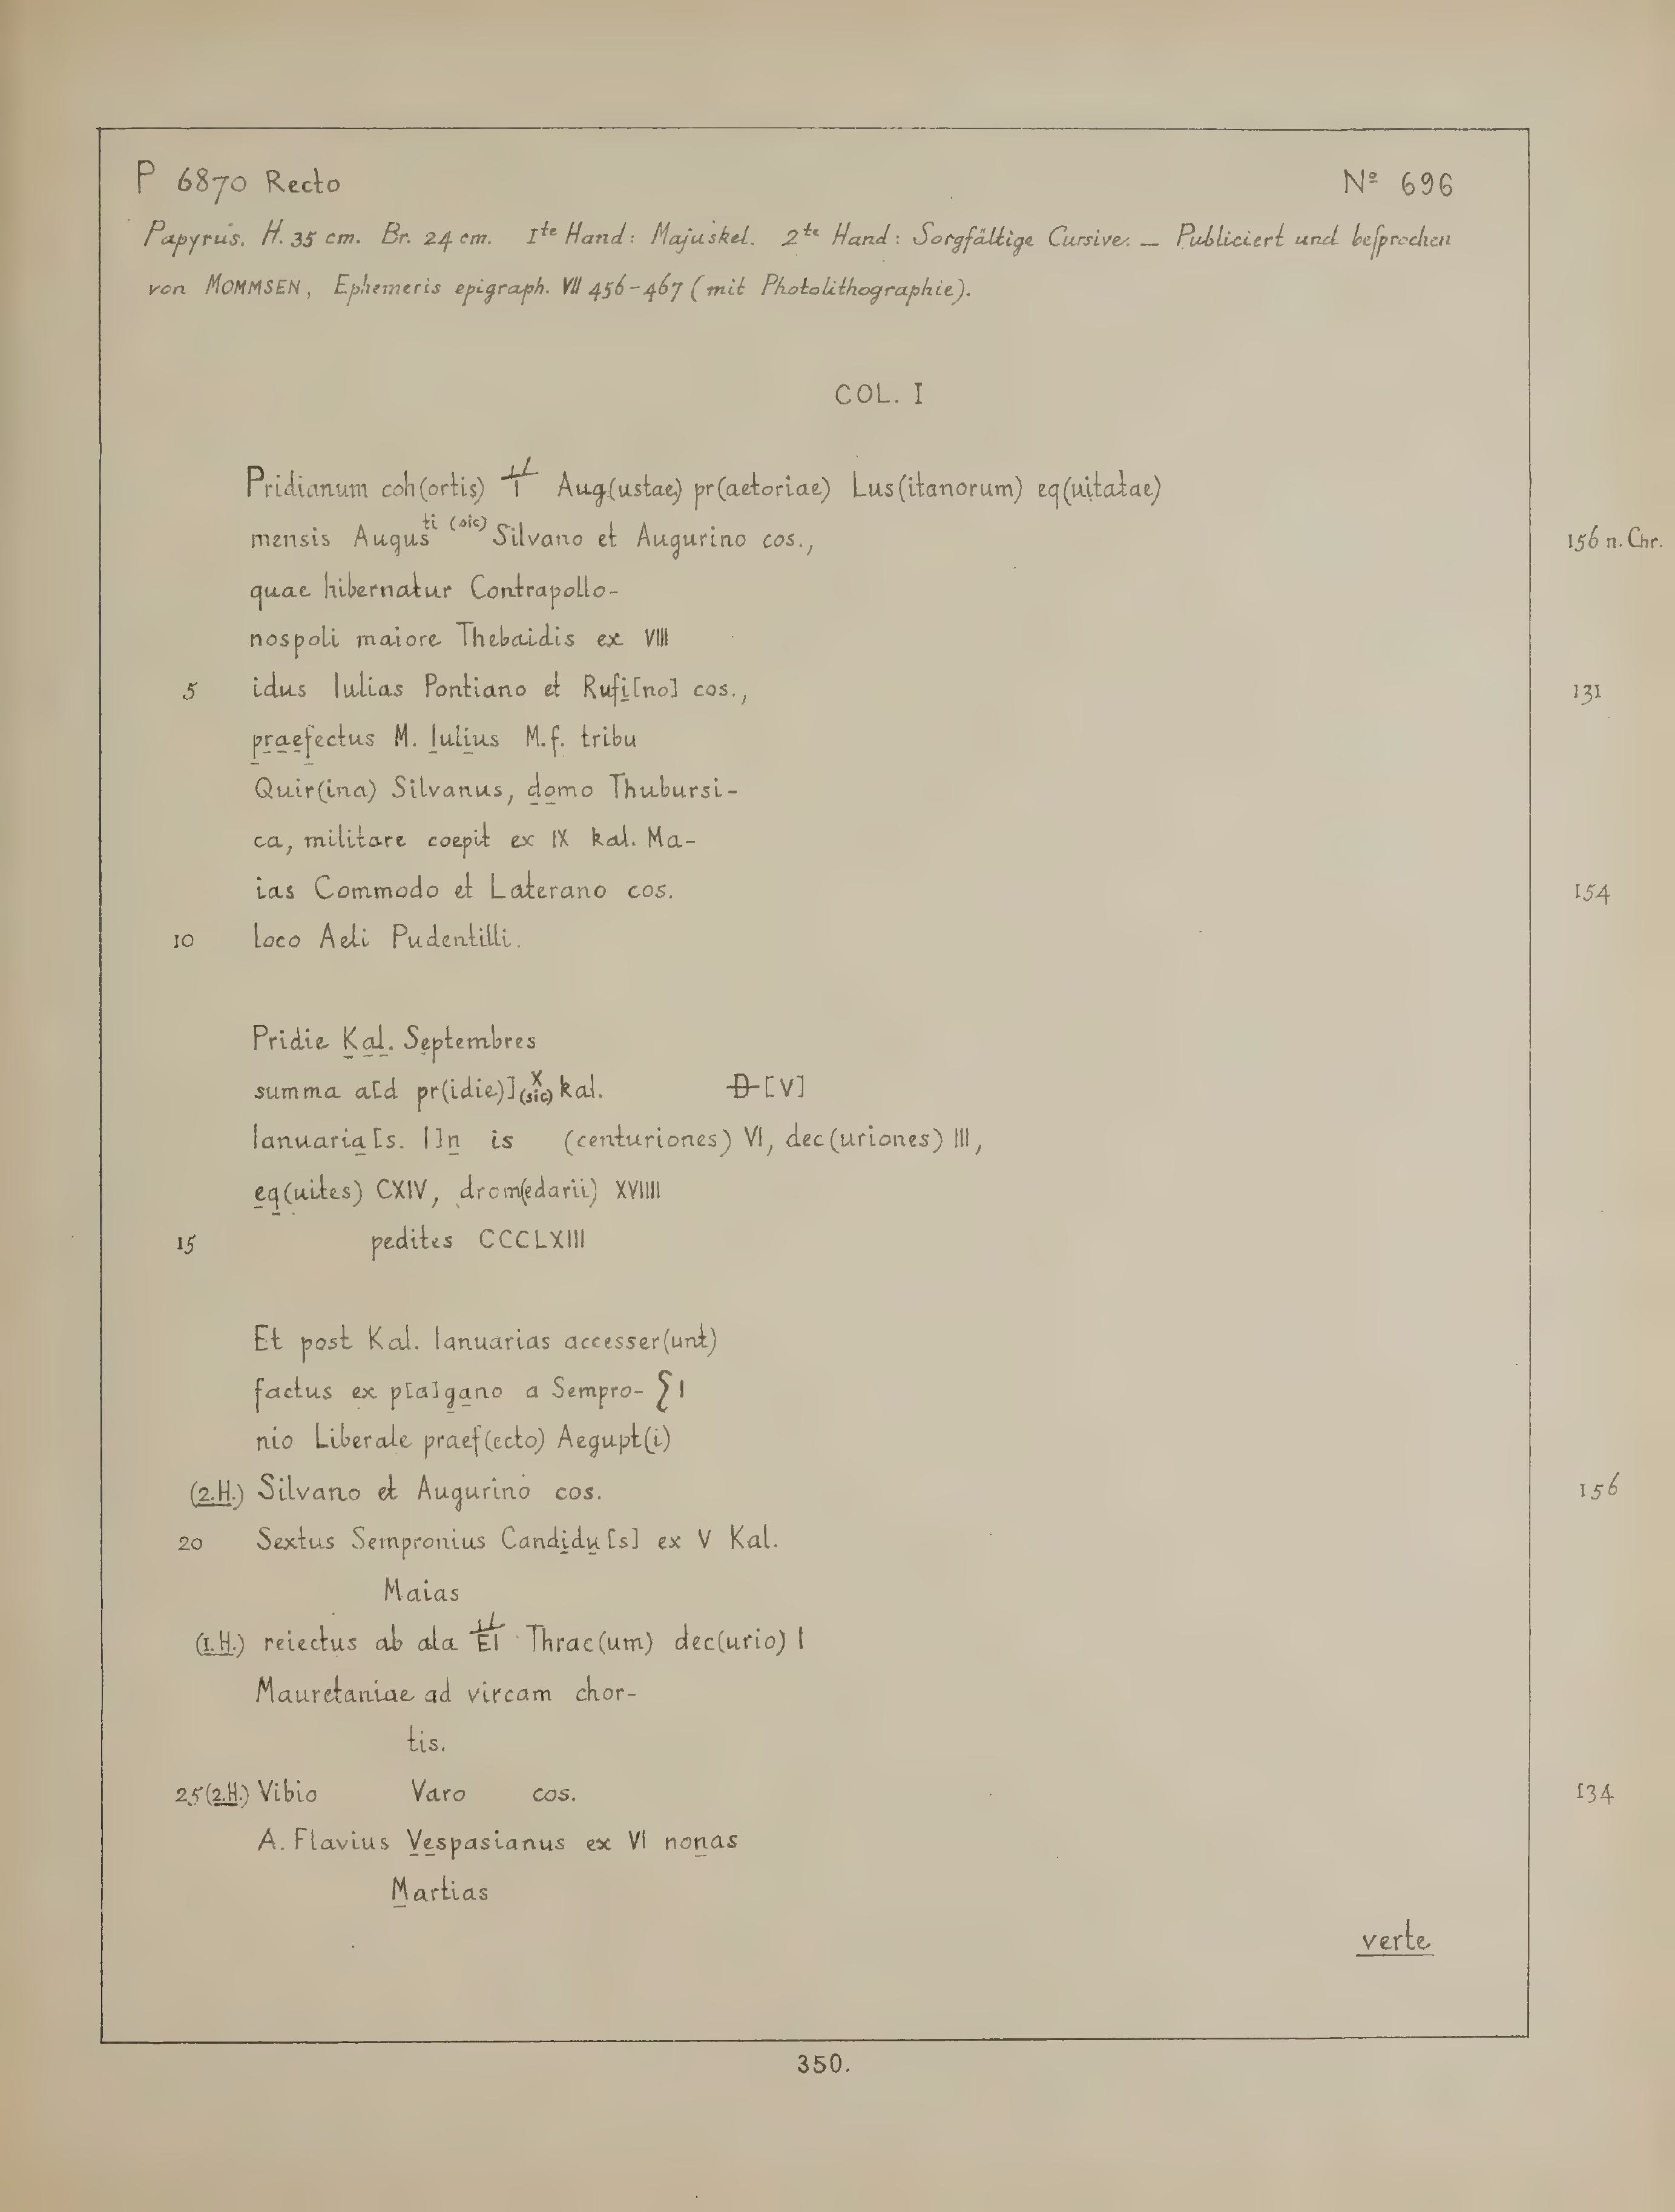 P 6870 Recto
Nº 696
Papyrus. H. 35 cm. Br. 24 cm. Iᵗᵉ Hand: Majuskel. 2ᵗᵉ Hand: Sorgfältige Cursive. — Publiciert und beſprochen
von MOMMSEN, Ephemeris epigraph. VII 456-467 (mit Photolithographie).
COL. I
Pridianum coh(ortis) I Aug(ustae) pr(aetoriae) Lus(itanorum) eq(uitatae)
mensis Augusti (sic) Silvano et Augurino cos., 156 n. Chr.
quae hibernatur Contrapollo-
nospoli maiore Thebaidis ex VIII
5 idus Iulias Pontiano et Rufi[no] cos., 131
praefectus M. Iulius M.f. tribu
Quir(ina) Silvanus, domo Thubursi-
ca, militare coepit ex IX kal. Ma-
ias Commodo et Laterano cos. 154
10 loco Aeli Pudentilli.
Pridie Kal. Septembres
summa a[d pr(idie)] X (sic) kal. D [V]
Ianuaria[s. I]n is (centuriones) VI, dec(uriones) III,
eq(uites) CXIV, drom(edarii) XVIIII
15 pedites CCCLXIII
Et post Kal. Ianuarias accesser(unt)
factus ex p[a]gano a Sempro- } I
nio Liberale praef(ecto) Aegupt(i)
(2.H.) Silvano et Augurino cos. 156
20 Sextus Sempronius Candidu[s] ex V Kal.
Maias
(1.H.) reiectus ab ala EI Thrac(um) dec(urio) I
Mauretaniae ad vircam chor-
tis.
25 (2.H.) Vibio Varo cos. 134
A. Flavius Vespasianus ex VI nonas
Martias
verte
350.